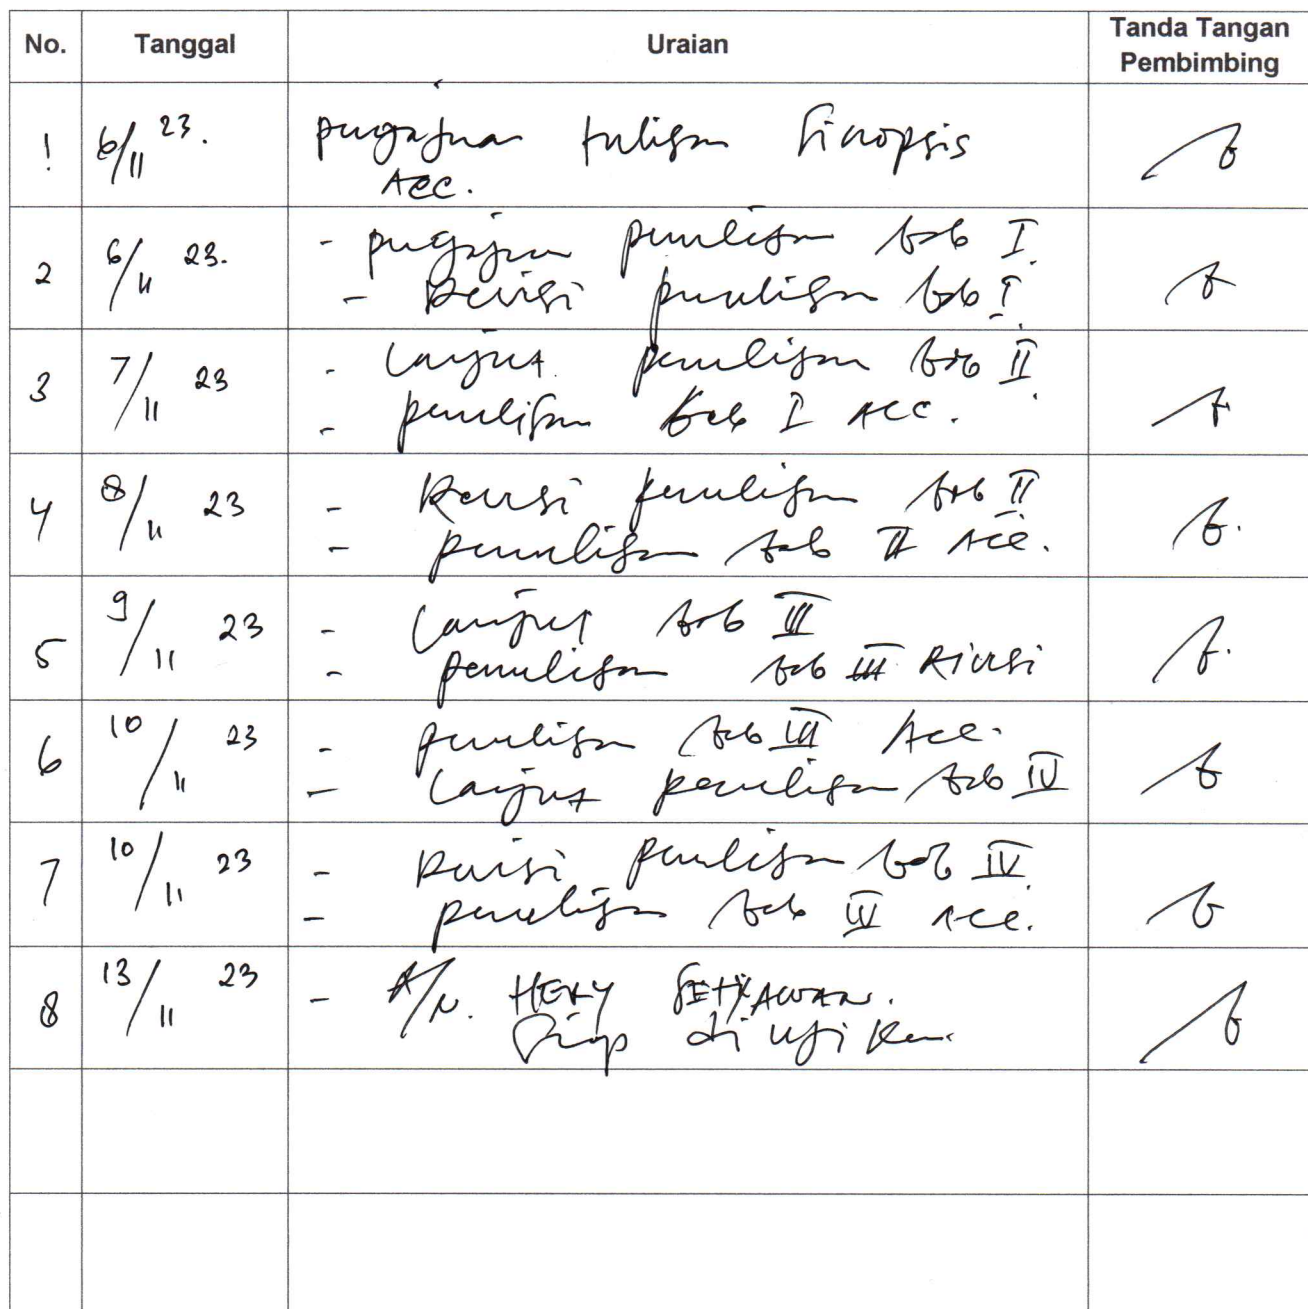 No. Tanggal Uraian Tanda Tangan Pembimbing
1 6/11 23. pengajuan tulisan Sinopsis
Acc.
2 6/11 23. - pengajuan penulisan bab I.
- Revisi penulisan bab I.
3 7/11 23 - Lanjut penulisan bab II.
- penulisan bab I Acc.
4 8/11 23 - Revisi penulisan bab II
- penulisan bab II Acc.
5 9/11 23 - Lanjut bab III
- penulisan bab III Revisi
6 10/11 23 - penulisan bab III Acc.
- Lanjut penulisan bab IV
7 10/11 23 - Revisi penulisan bab IV
- penulisan bab IV Acc.
8 13/11 23 - A/N. HERY SETYAWAN.
Siap di ujikan.